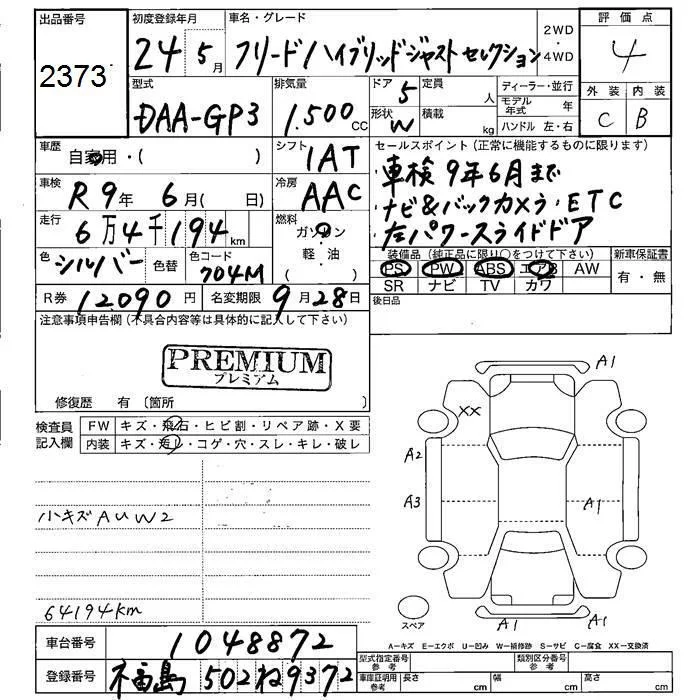 出品番号
2373
初度登録年月
24年5月
車名・グレード
フリード/ハイブリッドジャストセレクション
2WD・4WD
評価点
4
外装 内装
C B
型式
DAA-GP3
排気量
1.500 CC
ドア 5
形状 W
定員 人
積載 kg
ディーラー・並行
モデル年式 年
ハンドル 左・右
車歴
自家用・( )
シフト
IAT
車検
R9年 6月( 日)
冷房
AAC
走行
6万4千194km
燃料
ガソリン・軽・油
( )
色 シルバー 色替
色コード
704M
R券 12090円
名変期限 9月28日
セールスポイント(正常に機能するものに限ります)
・車検9年6月まで
・ナビ&バックカメラ・ETC
・左パワースライドドア
装備品(純正品に限り○をつけて下さい) 新車保証書
PS PW ABS エアB AW
有・無
SR ナビ TV カワ
後日品
注意事項申告欄(不具合内容等は具体的に記入して下さい)
PREMIUM
プレミアム
修復歴 有 〔箇所 〕
検査員記入欄
FW キズ・飛石・ヒビ割・リペア跡・X要
内装 キズ・汚レ・コゲ・穴・スレ・キレ・破レ
小キズAUW2
64194km
A1
XX
A2
A3
A1
A1
A1
スペア
A=キズ E=エクボ U=凹み W=補修跡 S=サビ C=腐食 XX=交換済
車台番号 1048872
登録番号 福島 502ね9372
型式指定番号 参考
類別区分番号 参考
車庫証明用 参考
長さ cm 幅 cm 高さ cm